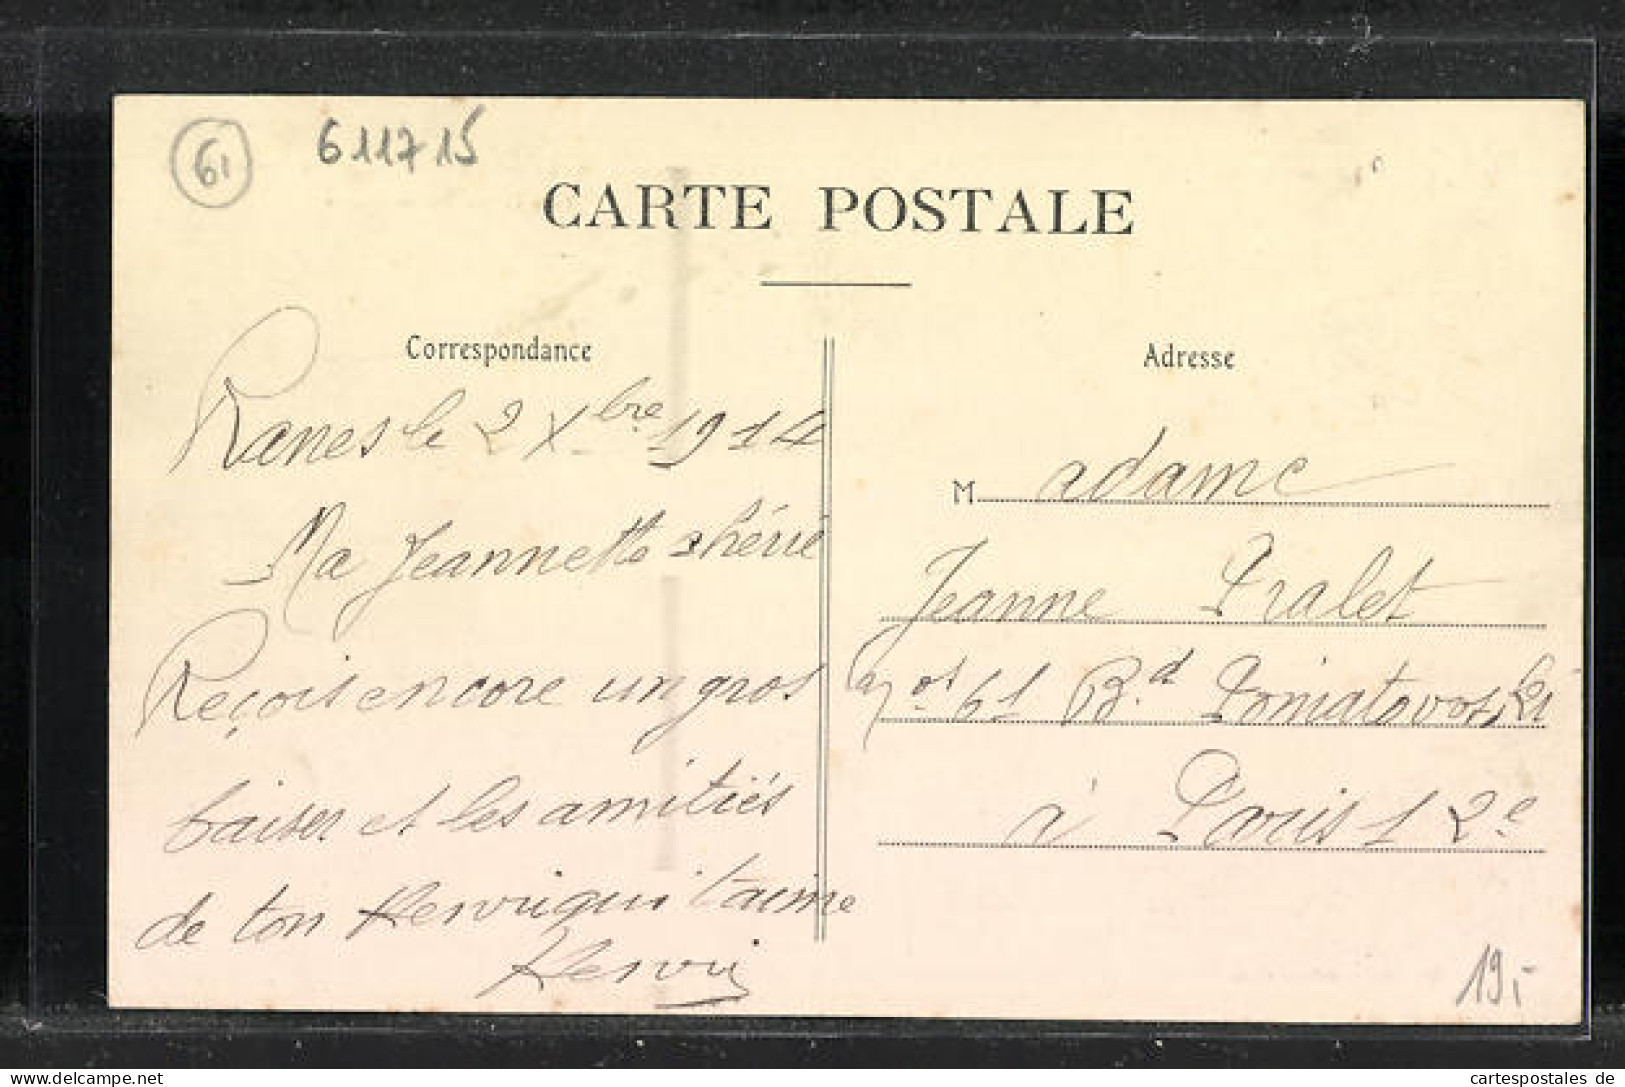 61
611715
CARTE POSTALE
Correspondance
Ranes le 2 Xbre 1914
Ma Jeannette chérie
Reçois encore un gros
baiser et les amitiés
de ton Henri qui t'aime
Henri
Adresse
M adame
Jeanne Pralet
61 Bd Poniatovoski
à Paris 12e
19,-
cartespostales de
delcampe.net